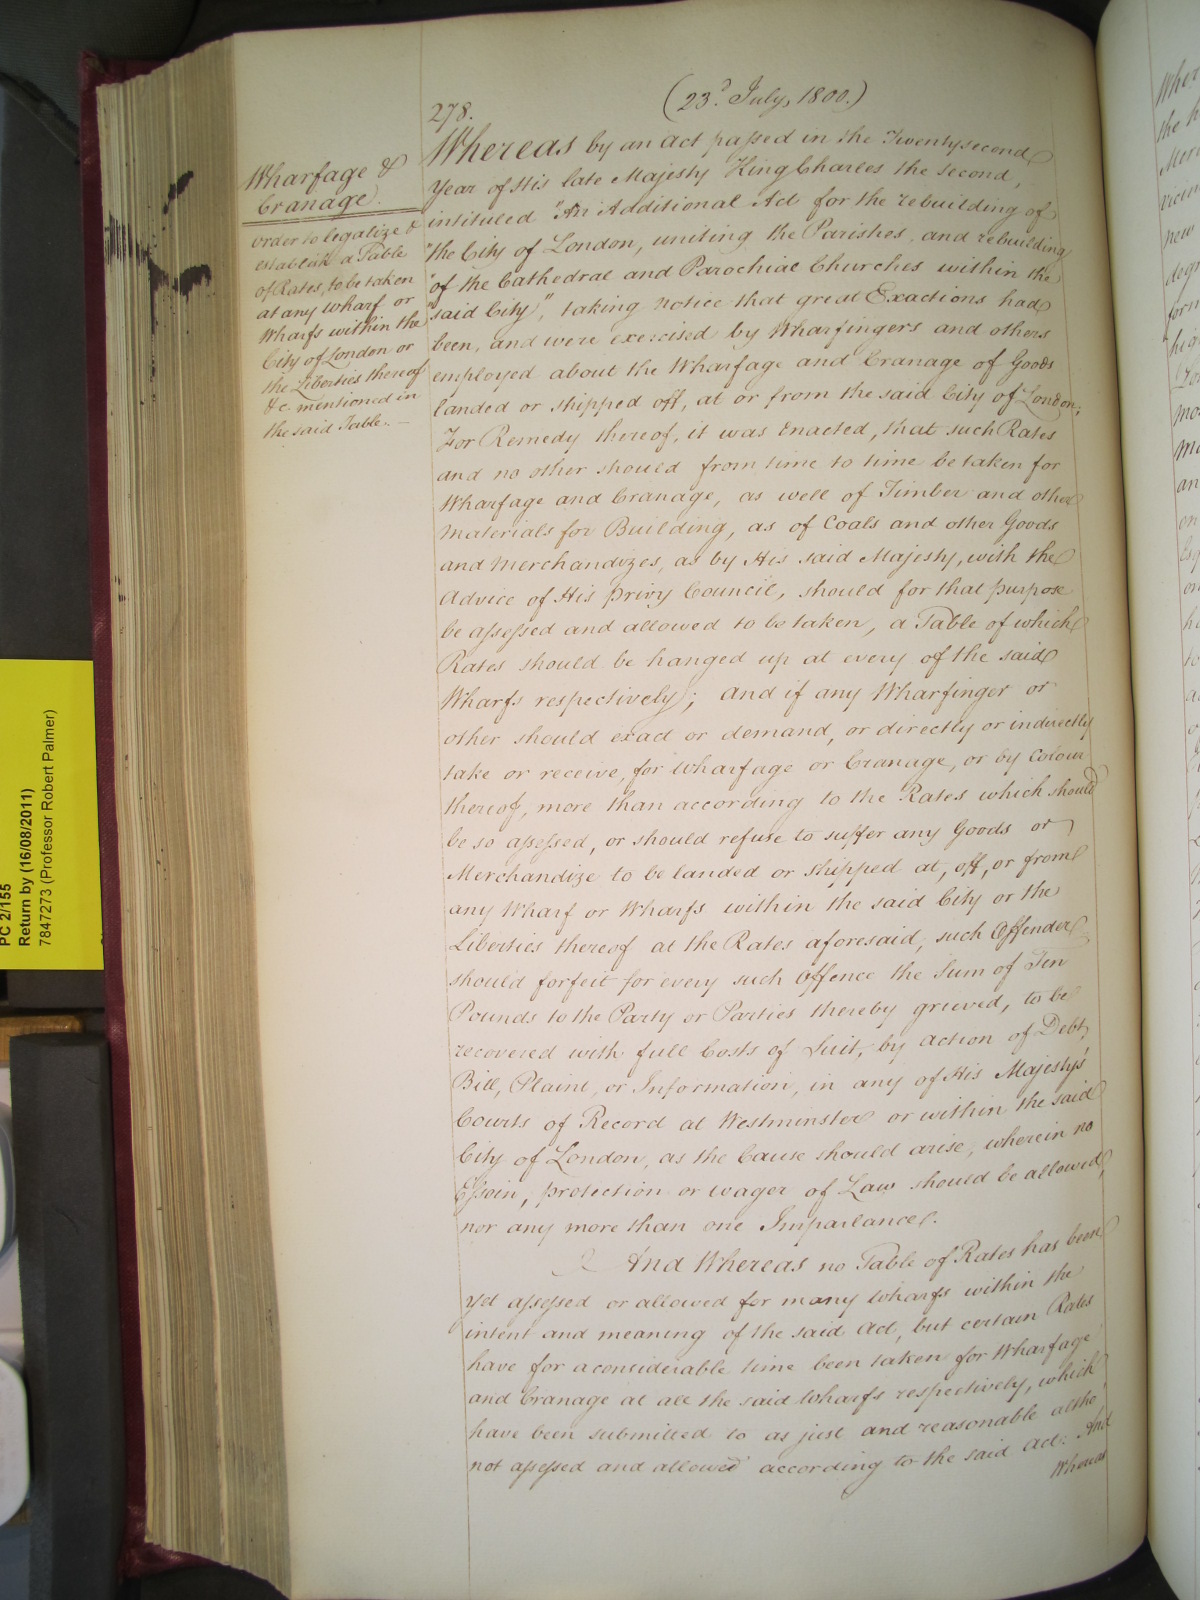 278.
(23d. July, 1800.)
Wharfage &
Cranage.
order to legalize &
establish a Table
of Rates, to be taken
at any Wharf or
Wharfs within the
City of London or
the Liberties thereof
&c. mentioned in
the said Table.
Whereas by an Act passed in the Twentysecond
Year of His late Majesty King Charles the Second,
intituled "An Additional Act for the rebuilding of
"the City of London, uniting the Parishes, and rebuilding
"of the Cathedral and Parochial Churches within the
"said City", taking notice that great Exactions had
been, and were exercised by Wharfingers and others
employed about the Wharfage and Cranage of Goods
landed or shipped off, at or from the said City of London;
For Remedy thereof, it was Enacted, that such Rates
and no other should from time to time be taken for
Wharfage and Cranage, as well of Timber and other
Materials for Building, as of Coals and other Goods
and Merchandizes, as by His said Majesty, with the
Advice of His Privy Council, should for that purpose
be assessed and allowed to be taken, a Table of which
Rates should be hanged up at every of the said
Wharfs respectively; And if any Wharfinger or
other should exact or demand, or directly or indirectly
take or receive, for Wharfage or Cranage, or by Colour
thereof, more than according to the Rates which should
be so assessed, or should refuse to suffer any Goods or
Merchandize to be landed or shipped at, off, or from
any Wharf or Wharfs within the said City or the
Liberties thereof at the Rates aforesaid, such Offender
should forfeit for every such Offence the Sum of Ten
Pounds to the Party or Parties thereby grieved, to be
recovered with full Costs of Suit, by Action of Debt,
Bill, Plaint, or Information, in any of His Majesty's
Courts of Record at Westminster or within the said
City of London, as the Cause should arise, wherein no
Essoin, protection or wager of Law should be allowed,
nor any more than one Imparlance.
And Whereas no Table of Rates has been
yet assessed or allowed for many Wharfs within the
intent and meaning of the said Act, but certain Rates
have for a considerable time been taken for Wharfage
and Cranage at all the said Wharfs respectively, which
have been submitted to as just and reasonable altho'
not assessed and allowed according to the said Act: And
Whereas
PC 2/155
Return by (16/08/2011)
7847273 (Professor Robert Palmer)